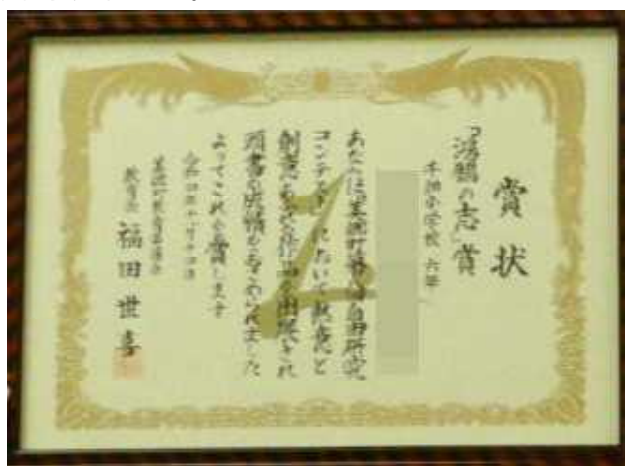 賞状
「鴻鵠の志」賞
小学校 六年
あなたは美郷町第 回自由研究
コンテストにおいて熱意と
創意ある作品を出展され
頭書の成績をおさめられました
よってこれを賞します
令和四年十 月十 日
美郷町教育委員会
教育長 福田世喜